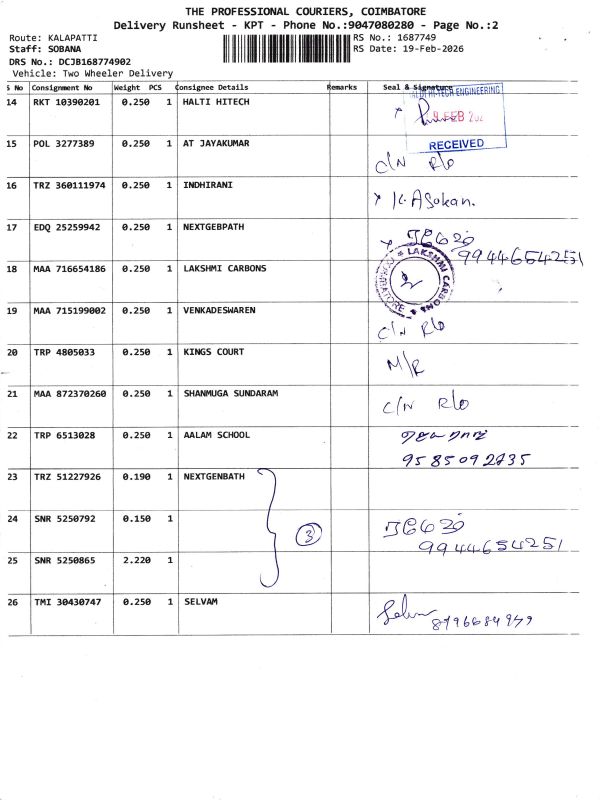 THE PROFESSIONAL COURIERS, COIMBATORE
Delivery Runsheet - KPT - Phone No.:9047080280 - Page No.:2
Route: KALAPATTI
RS No.: 1687749
Staff: SOBANA
RS Date: 19-Feb-2026
DRS No.: DCJB168774902
Vehicle: Two Wheeler Delivery
S No Consignment No Weight PCS Consignee Details Remarks Seal & Signature
14 RKT 10390201 0.250 1 HALTI HITECH
HI-TECH ENGINEERING
FEB
RECEIVED
15 POL 3277389 0.250 1 AT JAYAKUMAR C/N R/O
16 TRZ 360111974 0.250 1 INDHIRANI K. Asokan.
17 EDQ 25259942 0.250 1 NEXTGEBPATH
9944654251
18 MAA 716654186 0.250 1 LAKSHMI CARBONS
LAKSHMI CARBONS
19 MAA 715199002 0.250 1 VENKADESWAREN C/N R/O
20 TRP 4805033 0.250 1 KINGS COURT M/R
21 MAA 872370260 0.250 1 SHANMUGA SUNDARAM C/N R/O
22 TRP 6513028 0.250 1 AALAM SCHOOL
9585092735
23 TRZ 51227926 0.190 1 NEXTGENBATH
24 SNR 5250792 0.150 1 3
9944654251
25 SNR 5250865 2.220 1
26 TMI 30430747 0.250 1 SELVAM